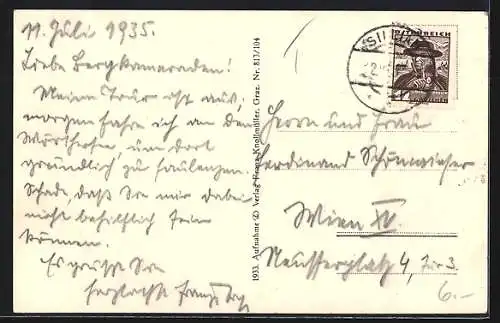 11. Juli 1935.
Liebe Bergkameraden!
Meine Tour ist aus,
morgen fahre ich an den
Wörthersee um dort
gründlich zu faulenzen.
Schade, daß Sie mir dabei
nicht behilflich sein
können.
Es grüßt Sie
herzlichst Franz
1933. Aufnahme u. Verlag Franz Knollmüller, Graz. Nr. 813/104
ÖSTERREICH
Herrn und Frau
Ferdinand
Wien IV.
4, Tür 3.
6.-